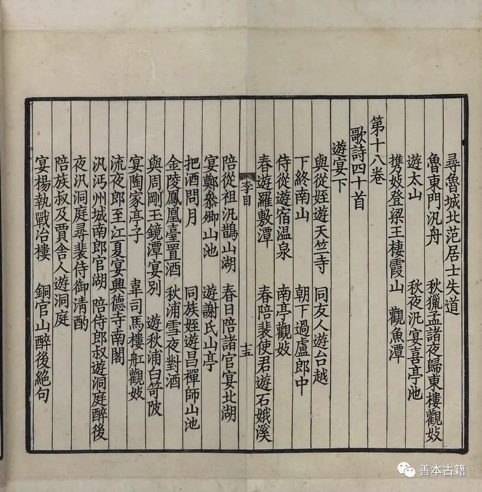 尋魯城北范居士失道
魯東門汎舟 秋獵孟諸夜歸東樓觀妓
遊太山 秋夜汎宴喜亭池
攜妓登梁王棲霞山 觀魚潭
第十八卷
歌詩四十首
遊宴下
與從姪遊天竺寺 同友人遊台越
下終南山 朝下過盧郎中
侍從遊宿溫泉 南亭觀妓
春遊羅敷潭 春陪裴使君遊石娥溪
李目 十五
陪從祖汎鵲山湖 春日陪諸官宴北湖
宴鄭叅卿山池 遊謝氏山亭
把酒問月 同族姪遊昌禪師山池
金陵鳳凰臺置酒 秋浦雪夜對酒
與周剛玉鏡潭宴別 遊秋浦白笴陂
宴陶家亭子 韋司馬樓舡觀妓
流夜郎至江夏宴興德寺南閣
汎沔州城南郎官湖 陪侍郎叔遊洞庭醉後
夜汎洞庭尋裴侍御清酌
陪族叔及賈舍人遊洞庭
宴楊執戟冶樓 銅官山醉後絕句
善本古籍